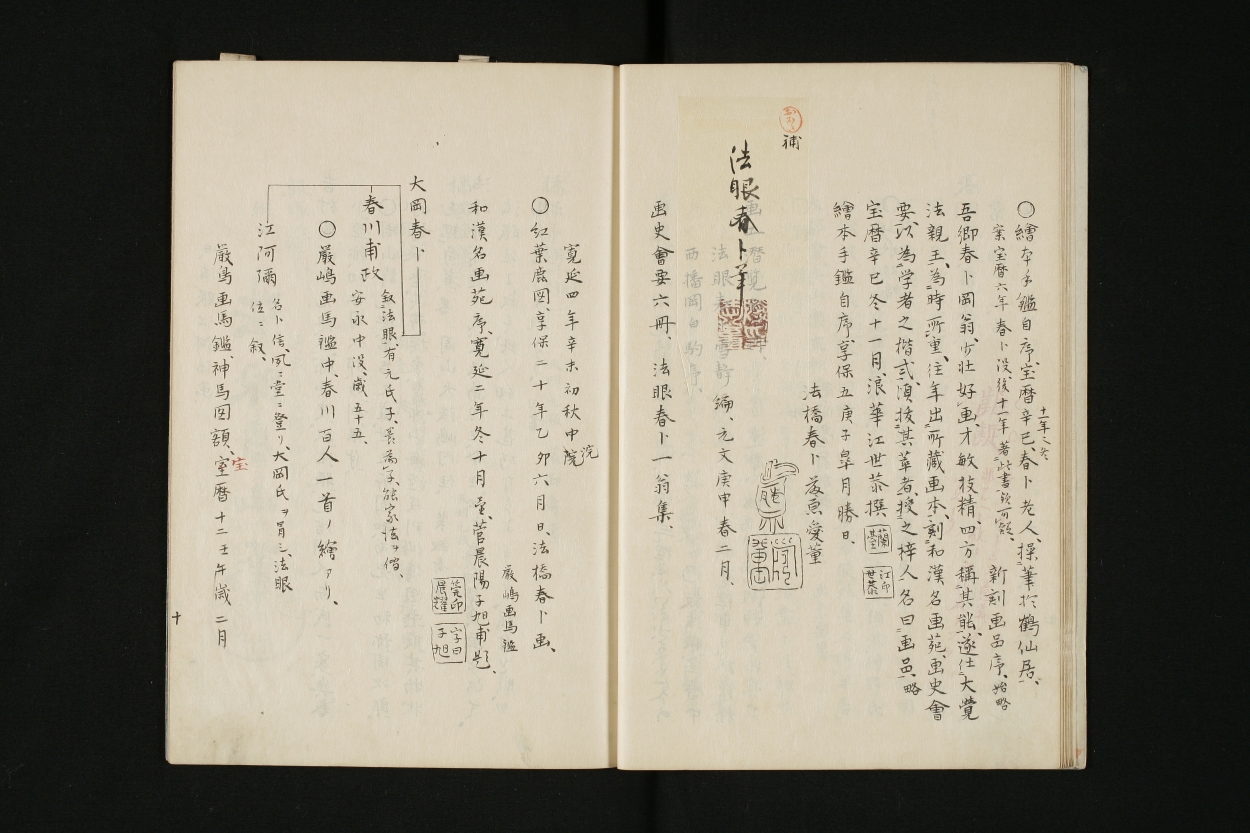 補
○繪本手鑑自序、宝暦辛巳、春卜老人、操筆於鶴仙居、
十一年之冬
案宝暦六年春卜没後十一年著此書
新刻画品序、始略
吾郷春卜岡翁、少壮好画、才敏技精、四方称其能、遂仕大覺
法親王、為時所重、往年出所藏画本、刻和漢名画苑、画史會
要、以為学者之楷式、頃抜其華者、授之梓人、名曰画品、略
宝暦辛巳冬十一月、浪華江世恭撰
蘭臺
江印世恭
繪本手鑑自序、享保五庚子皐月勝日、
法橋春卜愛董
法眼春卜筆
編、元文庚申春二月、
画史會要六冊　法眼春卜一翁集、
寛延四年辛未初秋中院
浣
○紅葉鹿図、享保二十年乙卯六月日、法橋春卜画、
嚴嶋画馬鑑
和漢名画苑序、寛延二年冬十月望、菅晨陽子旭甫題、
菅印晨耀
字曰子旭
大岡春卜
春川甫政
叙法眼、有元氏子、養為子、能家法ヲ
安永中没、歳五十五、
○嚴嶋画馬鑑中、春川百人一首ノ繪アリ、
江阿彌
大岡氏ヲ冐シ、法眼
位ニ叙、
嚴島画馬鑑神馬図額、宝暦十二壬午歳二月
宝
十